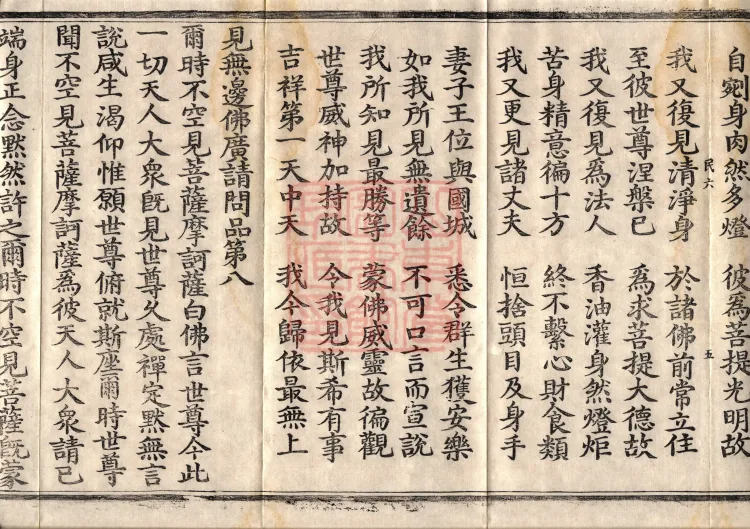 自剜身肉然多燈　彼為菩提光明故
我又復見清淨身　於諸佛前常立住
至彼世尊涅槃已　為求菩提大德故
我又復見為法人　香油灌身然燈炬
苦身精意徧十方　終不繫心財食類
我又更見諸丈夫　恒捨頭目及身手
民六　五
妻子王位與國城　悉令群生獲安樂
如我所見無遺餘　不可口言而宣說
我所知見最勝等　蒙佛威靈故徧觀
世尊威神加持故　令我見斯希有事
吉祥第一天中天　我今歸依最無上
見無邊佛廣請問品第八
爾時不空見菩薩摩訶薩白佛言世尊今此
一切天人大衆旣見世尊久處禪定默無言
說咸生渴仰惟願世尊俯就斯座爾時世尊
聞不空見菩薩摩訶薩為彼天人大衆請已
端身正念黙然許之爾時不空見菩薩旣蒙